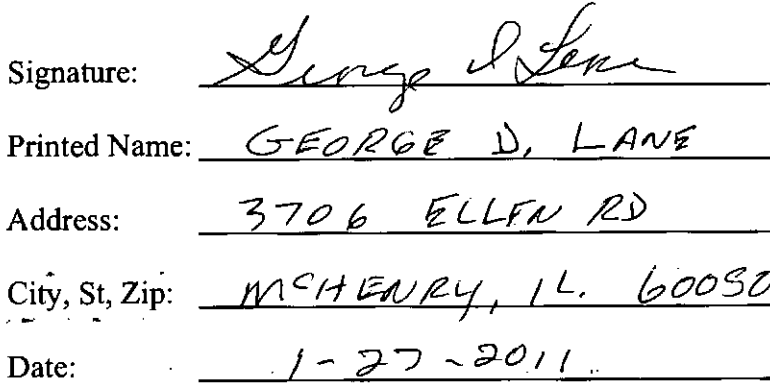 Signature: George D Lane
Printed Name: GEORGE D. LANE
Address: 3706 ELLEN RD
City, St, Zip: McHENRY, IL. 60050
Date: 1-27-2011